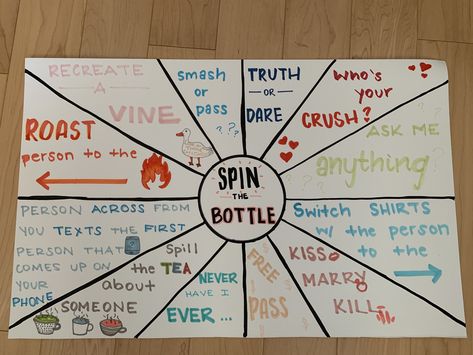 RECREATE
A
VINE
smash
or
pass
? ? ?
TRUTH
OR
DARE
Who's
your
CRUSH?
ASK ME
anything
ROAST
person to the
SPIN
THE
BOTTLE
PERSON ACROSS FROM
YOU TEXTS THE FIRST
PERSON THAT
COMES UP ON
YOUR
PHONE
Spill
the TEA
about
SOMEONE
NEVER
HAVE I
EVER ...
FREE
PASS
KISS
MARRY
KILL
Switch SHIRTS
w/ the person
to the